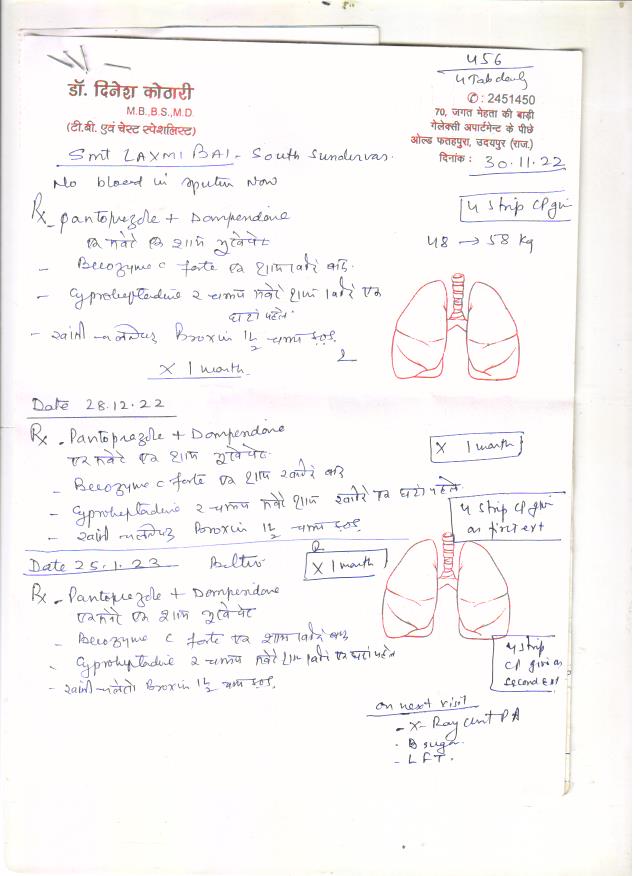 456
4 Tab daily
डॉ. दिनेश कोठारी
M.B.,B.S.,M.D.
(टी.बी. एवं चेस्ट स्पेशलिस्ट)
✆ : 2451450
70, जगत मेहता की बाड़ी
गेलेक्सी अपार्टमेन्ट के पीछे
ओल्ड फतहपुरा, उदयपुर (राज.)
दिनांक : 30.11.22
Smt LAXMI BAI - South Sundervas.
No blood in sputum now
4 strip CP given
Rx - Pantoprazole + Domperidone
एक सवेरे एक शाम भूखे पेट
48 → 58 Kg
- Becozyme C forte एक शाम खाने बाद
- Cyproheptadine 2 चम्मच सवेरे शाम खाने एक
घंटा पहले
- खांसी चलने पर Broxin 1½ चम्मच
X 1 month
Date 28.12.22
Rx - Pantoprazole + Domperidone
एक सवेरे एक शाम भूखे पेट
X 1 month
- Becozyme C forte एक शाम खाने बाद
- Cyproheptadine 2 चम्मच सवेरे शाम खाने एक घंटा पहले
- खांसी चलने पर Broxin 1½ चम्मच
4 strip CP given
as first ext
Date 25.1.23 Better
X 1 month
Rx - Pantoprazole + Domperidone
एक सवेरे एक शाम भूखे पेट
- Becozyme C forte एक शाम खाने बाद
- Cyproheptadine 2 चम्मच सवेरे शाम खाने एक घंटा पहले
- खांसी चले तो Broxin 1½ चम्मच
4 strip
CP given as
second Ext
on next visit
- X-Ray chest PA
- B sugar
- LFT.